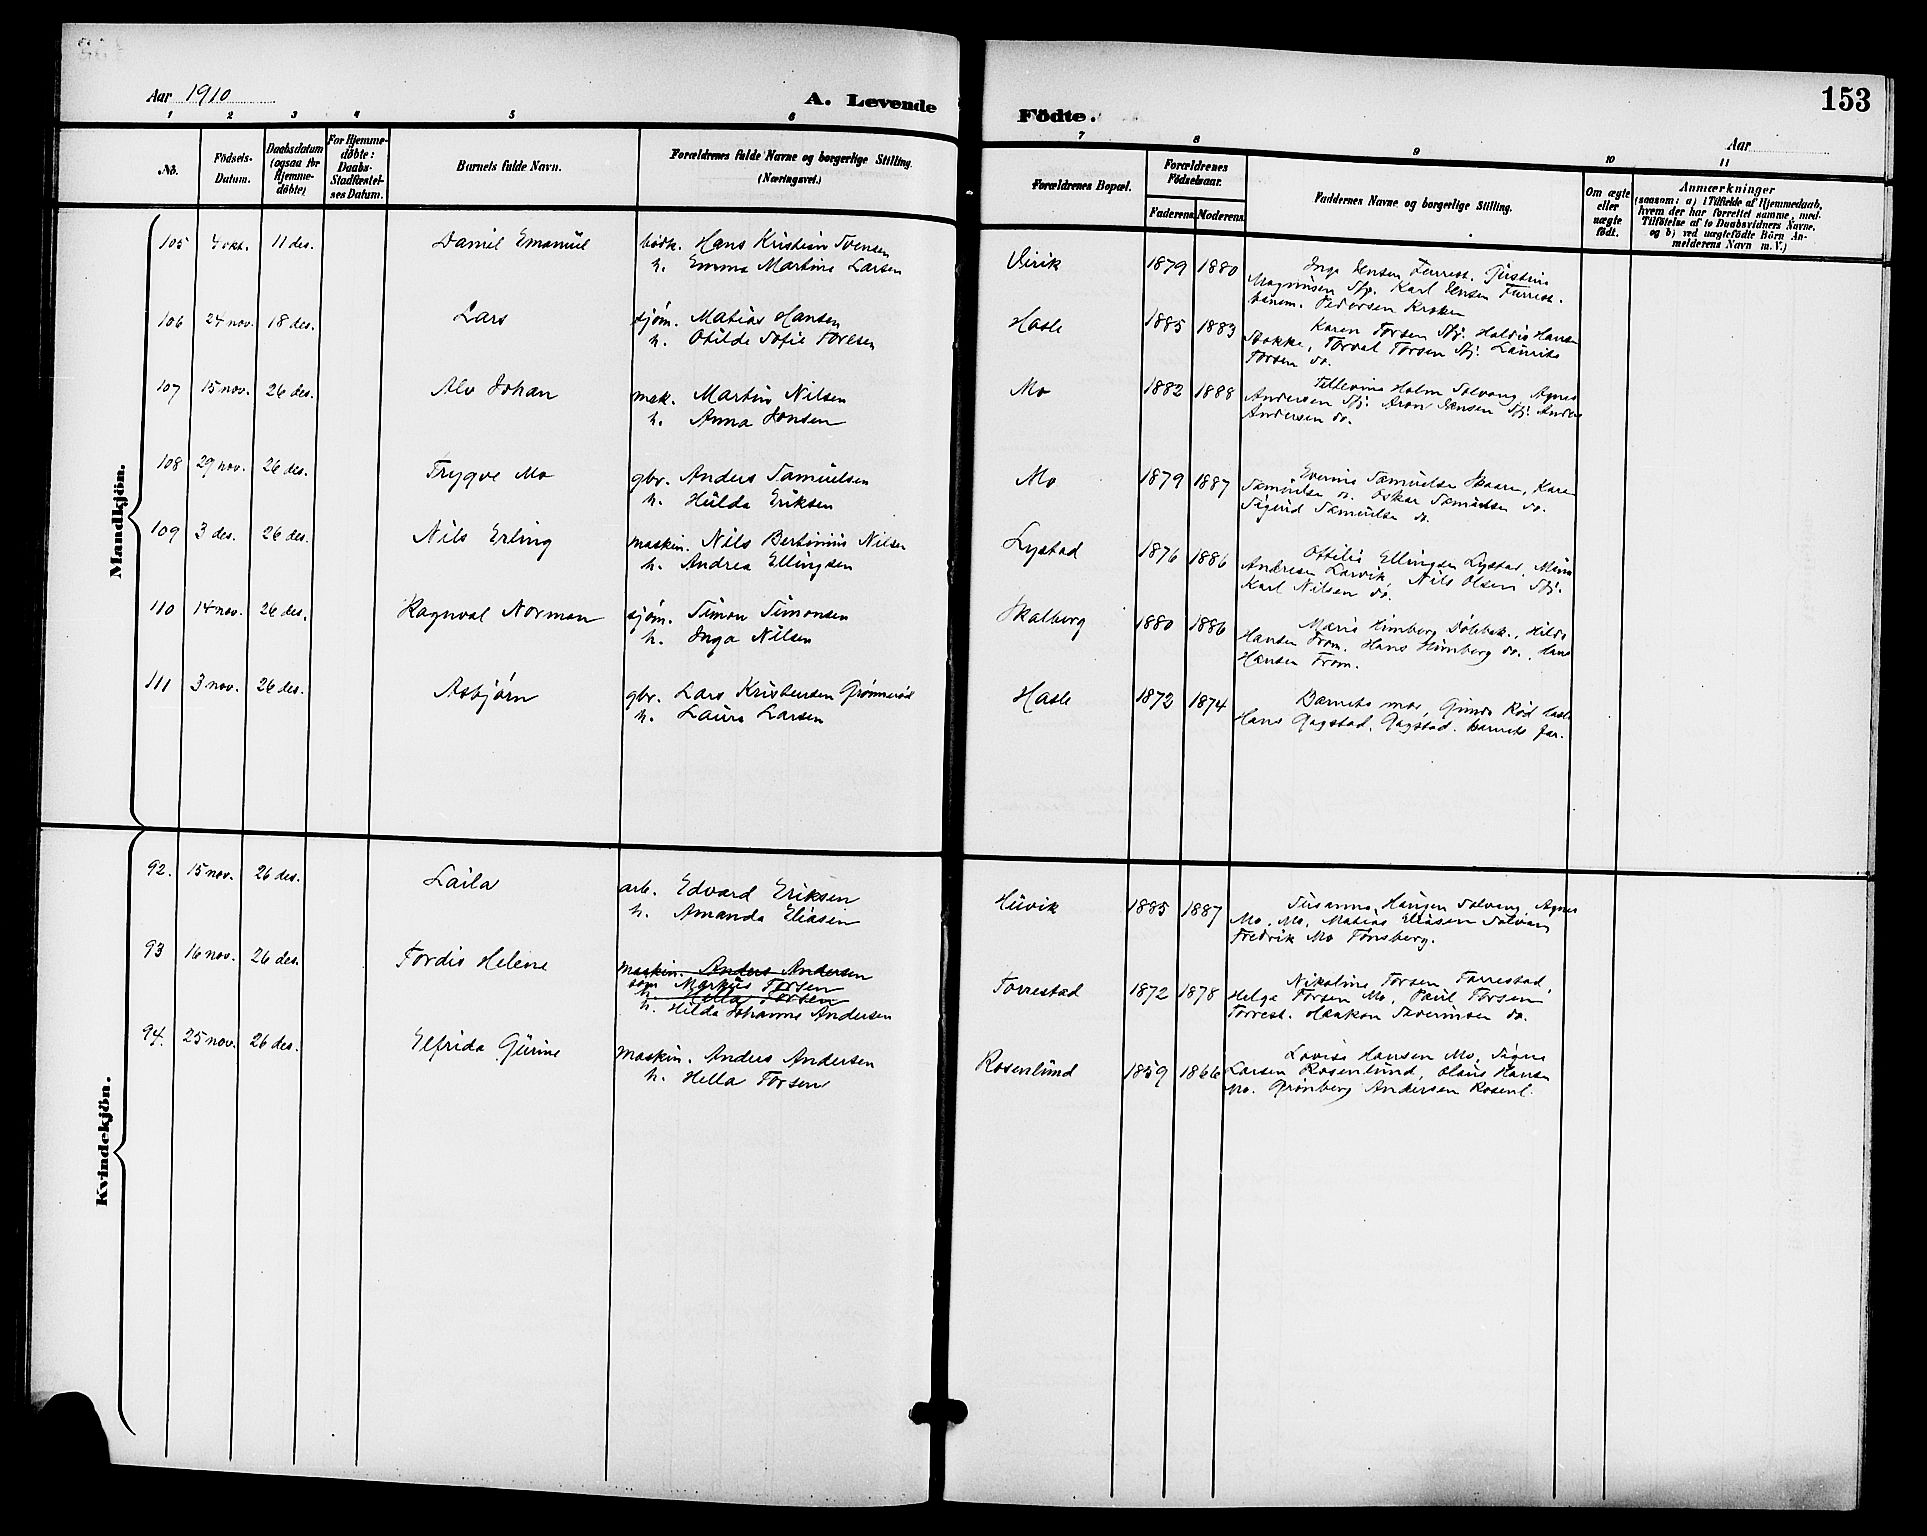 Aar 1910
A. Levende
Födte.
153
Aar
1
2
3
4
5
6
7
8
9
10
11
No.
Födsels-
Datum.
Daabsdatum
(ogsaa for
Hjemme-
döbte)
For Hjemme-
döbte:
Daabs-
Stadfæstel-
ses Datum.
Barnets fulde Navn.
Forældrenes fulde Navne og borgerlige Stilling.
(Næringsvei.)
Forældrenes Bopæl.
Forældrenes
Födselsaar.
Faderens
Moderens
Faddernes Navne og borgerlige Stilling.
Om ægte
eller
uægte
født.
Anmærkninger
(saasom: a) i Tilfælde af Hjemmedaab,
hvem der har forrettet samme, med
Tilföielse af to Daabsvidners Navne,
og b) ved uægtefödte Börn An-
melderens Navn m. V.)
Mandkjön.
105 4 okt. 11 des. Daniel Emanuel bødk. Hans Kristian Svensen
h. Emma Martine Larsen
Virik 1879 1880 Inga Jensen Furrest. Justine
Magnussen Sfj. Karl Jensen Furrest.
Pedersen Kroken
106 24 nov. 18 des. Lars sjøm. Matias Hansen
h. Otilde Sofie Toresen
Hasle 1885 1883 Karen Torsen Sfj. Haldis Hansen
Stokke, Torval Torsen Sfj. Laurits
Torsen do.
107 15 nov. 26 des. Alv Johan mask. Martin Nilsen
h. Anna Jonsen
Mo 1882 1888 Tellevine Holm Solvang, Agnes
Andersen Sfj. Aron Jensen Sfj. Anders
Andersen do.
108 29 nov. 26 des. Trygve Mo gbr. Anders Samuelsen
h. Hulda Eriksen
Mo 1879 1887 Samuelsen Skaare, Karen
Samuelsen do. Oskar Samuelsen do.
Sigurd Samuelsen do.
109 3 des. 26 des. Nils Erling maskin. Nils Bertinius Nilsen
h. Andrea Ellingsen
Lystad 1876 1886 Ottilie Ellingsen Lystad, Mina
Andresen Larvik, Nils Olsen Sfj.
Karl Nilsen do.
110 14 nov. 26 des. Ragnval Norman sjøm. Simon Simonsen
h. Inga Nilsen
Skalberg 1880 1886 Marie Himberg Døbbak., Hilda
Hansen From, Hans Himberg do., Hans
Hansen From.
111 3 nov. 26 des. Asbjørn gbr. Lars Kristensen Grønnerød
h. Laura Larsen
Hasle 1872 1874 Barnets mor, Gunda Rød Hasle
Hans Gogstad, Gogstad. Barnets far.
Kvindekjön.
92. 15 nov. 26 des. Laila arb. Edvard Eriksen
h. Amanda Eliasen
Huvik 1885 1887 Susanna Haugen Solvang, Agnes
Mo, Mo, Matias Eliasen Solvang
Fredrik Mo Tønsberg.
93 16 nov. 26 des. Tordis Helene maskin. Anders Andersen
søm Markus Torsen
h. Hella Torsen
h. Hilda Johanne Andersen
Torrestad 1872 1878 Nikoline Torsen Torrestad,
Helga Torsen Mo, Paul Torsen
Torrest. Haakon Severinsen do.
94. 25 nov. 26 des. Elfrida Gurine maskin. Anders Andersen
h. Hella Torsen
Rosenlund 1859 1866 Lovise Hansen Mo, Signe
Larsen Rosenlund, Olaus Hansen
Mo. Grønberg Andersen Rosenl.